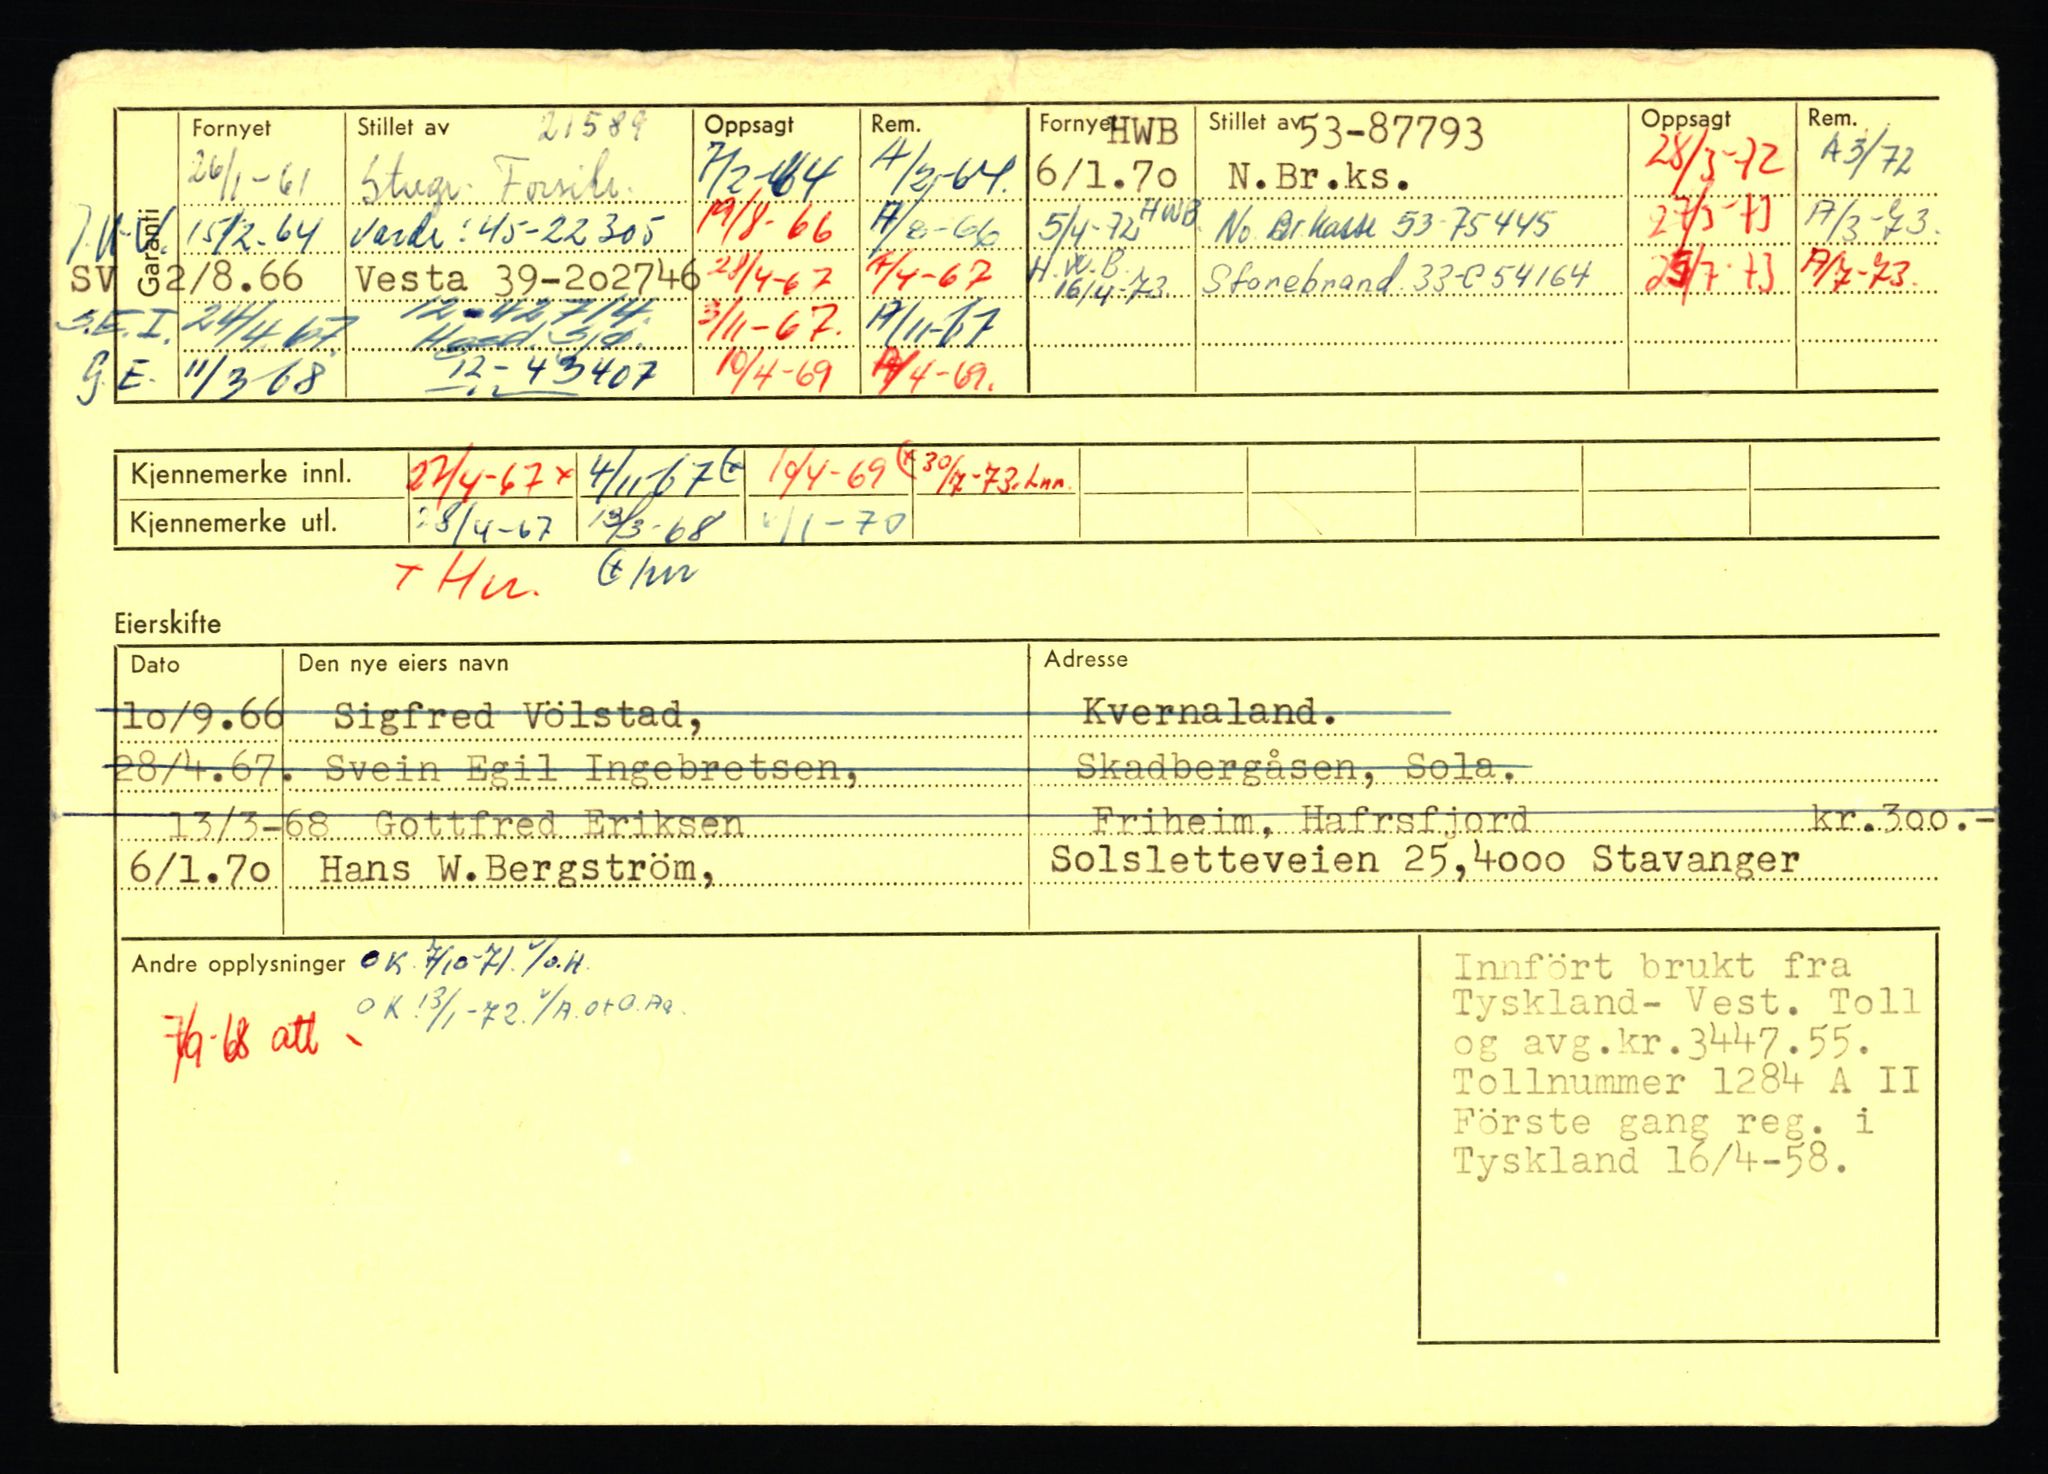 Garanti
Fornyet Stillet av 21589 Oppsagt Rem.
26/1-61 Stvgr. Forsikr. 7/2-64 A/2-64.
15/2-64 Varde: 45-22305 19/8-66 A/8-66
SV 2/8.66 Vesta 39-2o2746 28/4-67 A/4-67
S.E.I. 24/4-67. 12-42714. 3/11-67. A/11-67
G.E. 11/3-68 12-43407 10/4-69 A/4-69.
Fornyet HWB Stillet av 53-87793 Oppsagt Rem.
6/1.7o N.Br.ks. 28/3-72 A 3/72
5/4-72 HWB. No. Br kasse 53-75445 27/3-73 A/3-73.
H.W.B. 16/4-73. Storebrand 33-C54164 25/7-73 A/7-73.
Kjennemerke innl. 27/4-67 x 4/11-67 (x 10/4-69 (x 30/7-73. Lnn.
Kjennemerke utl. 28/4-67 13/3-68 6/1-70
x Hvr. (x hvr
Eierskifte
Dato Den nye eiers navn Adresse
1o/9.66 Sigfred Völstad, Kvernaland.
28/4.67. Svein Egil Ingebretsen, Skadbergåsen, Sola.
13/3-68 Gottfred Eriksen Friheim, Hafrsfjord kr.3oo.-
6/1.7o Hans W.Bergström, Solsletteveien 25,4ooo Stavanger
Andre opplysninger OK 7/10-71. v/O.H.
OK 13/1-72. v/A.
7/9-68 att
Innfört brukt fra
Tyskland- Vest. Toll
og avg.kr.3447.55.
Tollnummer 1284 A II
Förste gang reg. i
Tyskland 16/4-58.